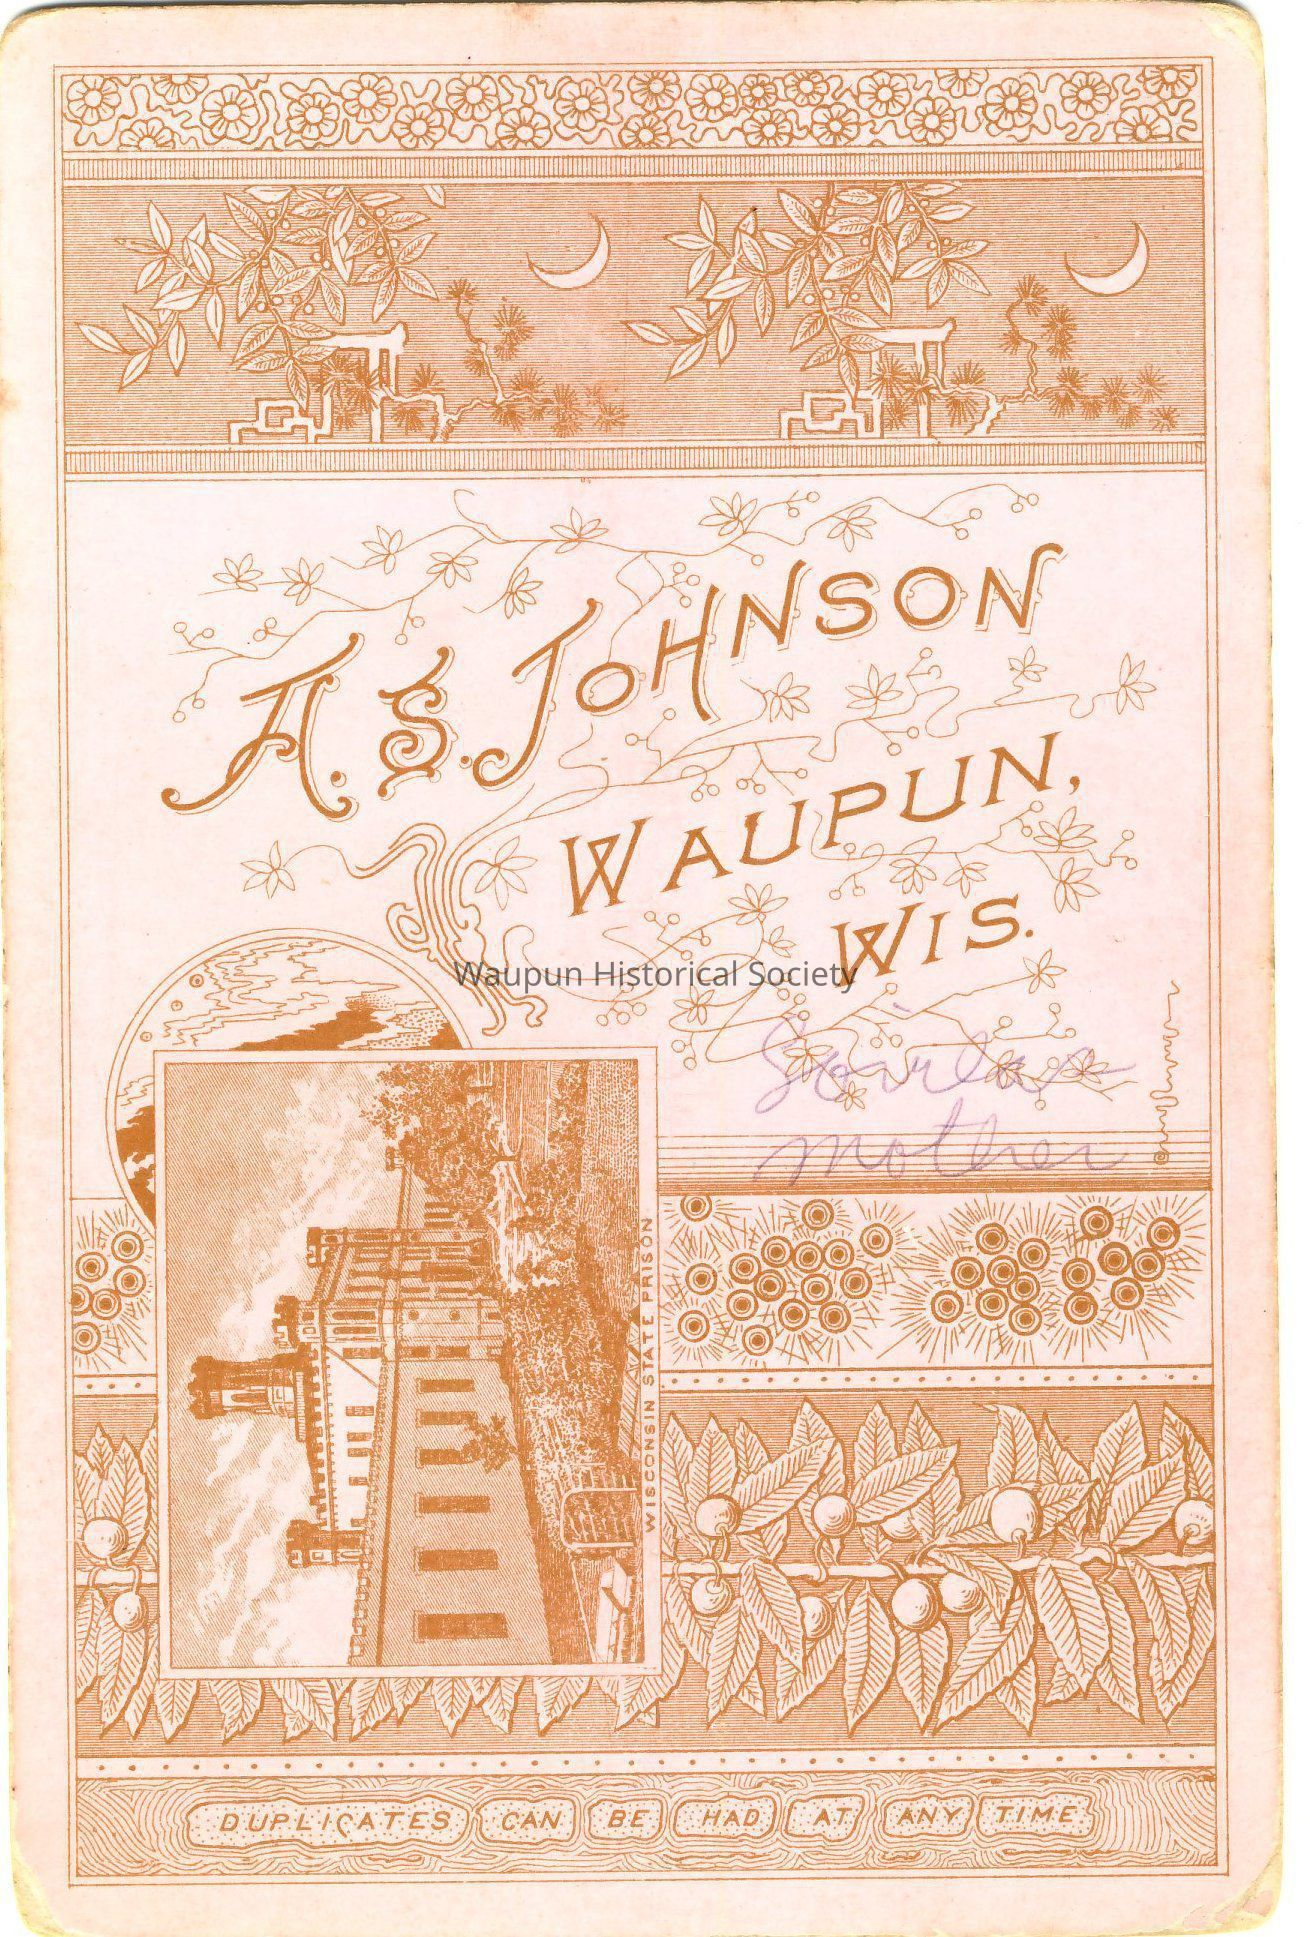 A. S. JOHNSON
WAUPUN,
WIS.
Waupun Historical Society
mother
WISCONSIN STATE PRISON
DUPLICATES CAN BE HAD AT ANY TIME